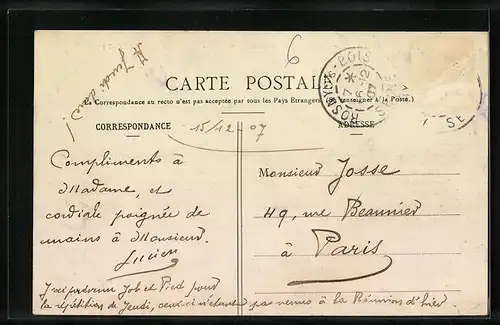 A Jeudi donc!
6
CARTE POSTALE
(La Correspondance au recto n'est pas acceptée par tous les Pays Étrangers. Se renseigner à la Poste.)
ROSNY-S-BOIS
17 *
6-12
07
CORRESPONDANCE
ADRESSE
15/12 07
Compliments à
Madame, et
cordiale poignée de
mains à Monsieur.
Lucien
Monsieur Josse
49, rue Beaunier
à Paris
J'vais prévenir Job et Pied pour
la répétition de Jeudi, ceux-ci n'étant pas venus à la Réunion d'hier.